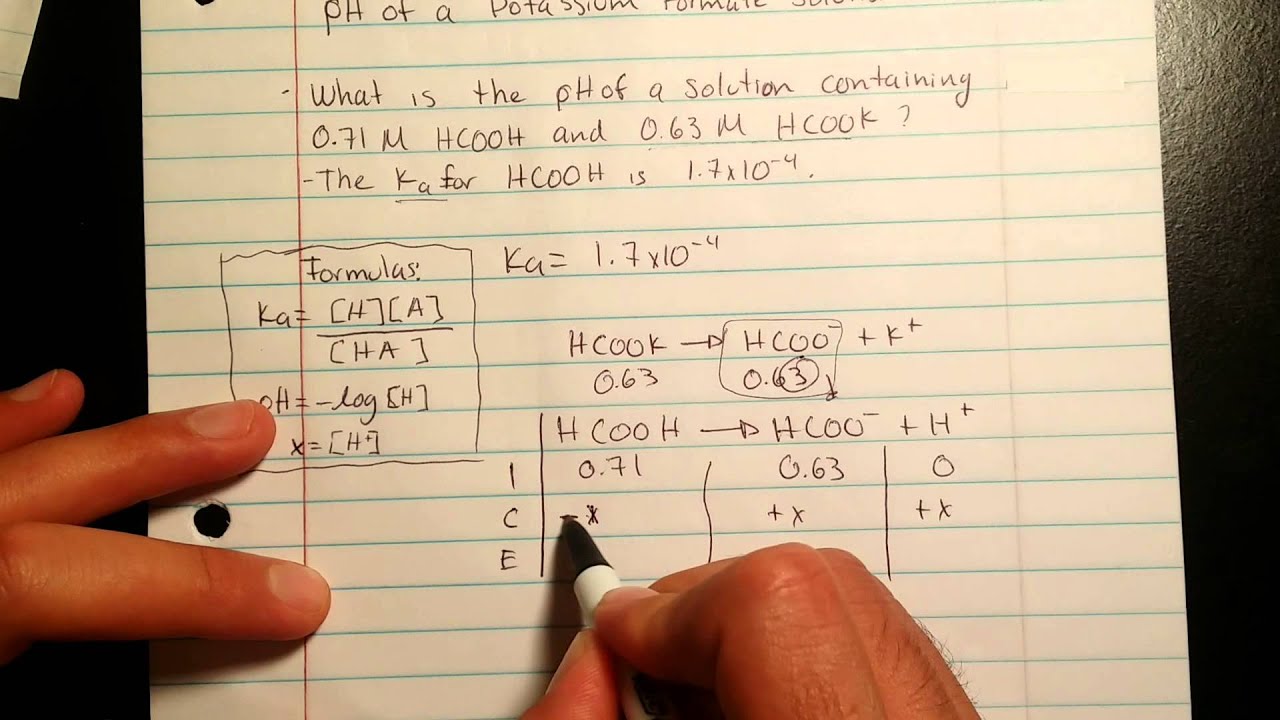 pH of a Potassium Formate
- What is the pH of a solution containing
0.71 M HCOOH and 0.63 M HCOOK?
- The Ka for HCOOH is 1.7x10⁻⁴.
Formulas:
Ka = [H][A]
[HA]
pH = -log[H]
x = [H⁺]
Ka = 1.7x10⁻⁴
HCOOK → HCOO⁻ + K⁺
0.63 0.63
HCOOH → HCOO⁻ + H⁺
I 0.71 0.63 0
C -x +x +x
E